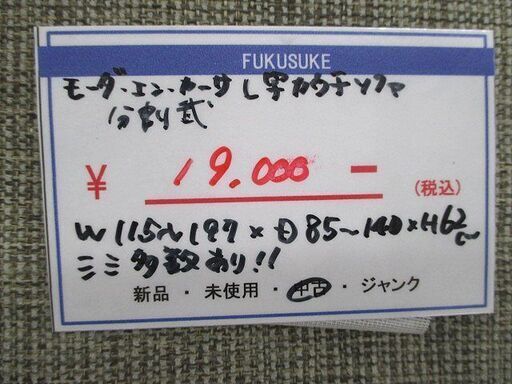 FUKUSUKE
モーダ・エン・カーサ L字カウチソファ
分割式
¥ 19.000 - (税込)
W115~197×D85~140×H62cm
ミミ多数あり!!
新品・未使用・中古・ジャンク